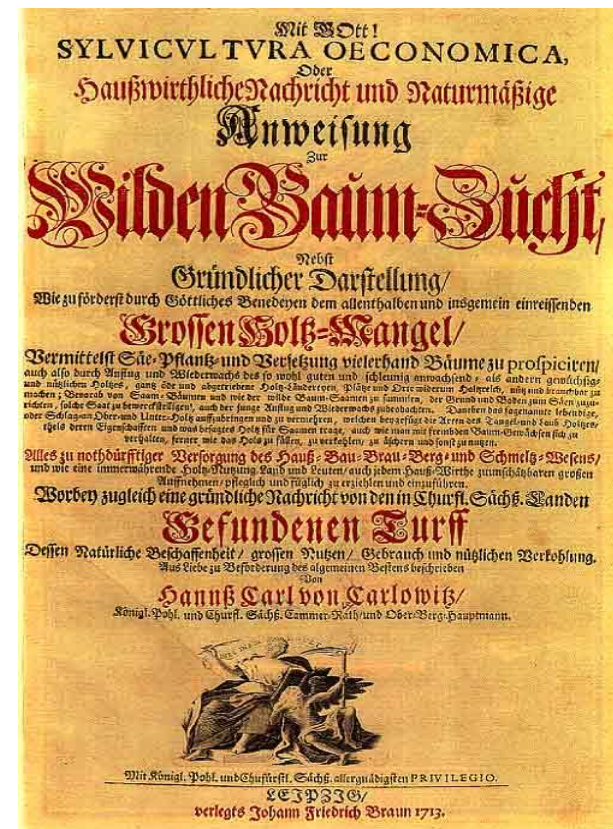 Mit GOtt!
SYLVICVLTVRA OECONOMICA,
Oder
Haußwirthliche Nachricht und Naturmäßige
Anweisung
Zur
Wilden Baum-Zucht,
Nebst
Gründlicher Darstellung/
Wie zu förderst durch Göttliches Benedeyen dem allenthalben und insgemein einreissenden
Grossen Holtz-Mangel/
Vermittelst Säe-Pflantz- und Versetzung vielerhand Bäume zu prospiciren/
auch also durch Anflug und Wiederwachs des so wohl guten und schleunig anwachsend- als andern gewüchsig-
und nützlichen Holtzes, gantz öde und abgetriebene Holtz-Ländereyen, Plätze und Orte widerum Holtzreich, nütz und brauchbar zu
machen; Bevorab von Saam-Bäumen und wie der wilde Baum-Saamen zu sammlen, der Grund und Boden zum Säen zuzu-
richten, solche Saat zu bewerckstelligen, auch der junge Anflug und Wiederwachs zu beobachten. Daneben das sogenannte lebendige,
oder Schlag-an Ober- und Unter-Holtz auffzubringen und zu vermehren, welchen beygefügt die Arten des Tangel- und Laub-Holtzes,
theils deren Eigenschafften und was besagtes Holtz für Saamen trage, auch wie man mit frembden Baum-Gewächsen sich zu
verhalten, ferner wie das Holtz zu fällen, zu verkohlen, zu äschern und sonst zu nutzen.
Alles zu nothdürfftiger Versorgung des Hauß-Bau-Brau-Berg- und Schmeltz-Wesens/
und wie eine immerwährende Holtz-Nutzung Land und Leuten/ auch jedem Hauß-Wirthe zu unschätzbaren großen
Auffnehmen/ pfleglich und füglich zu erziehlen und einzuführen.
Worbey zugleich eine gründliche Nachricht von den in Churfl. Sächß. Landen
Gefundenen Turff
Dessen Natürliche Beschaffenheit/ grossen Nutzen/ Gebrauch und nützlichen Verkohlung.
Aus Liebe zu Beförderung des algemeinen Bestens beschrieben
Von
Hannß Carl von Carlowitz/
Königl. Pohl. und Churfl. Sächß. Cammer-Rath/ und Ober-Berg-Hauptmann.
Mit Königl. Pohl. und Chufürstl. Sächß. allergnädigsten PRIVILEGIO.
LEJPZJG/
verlegts Johann Friedrich Braun 1713.